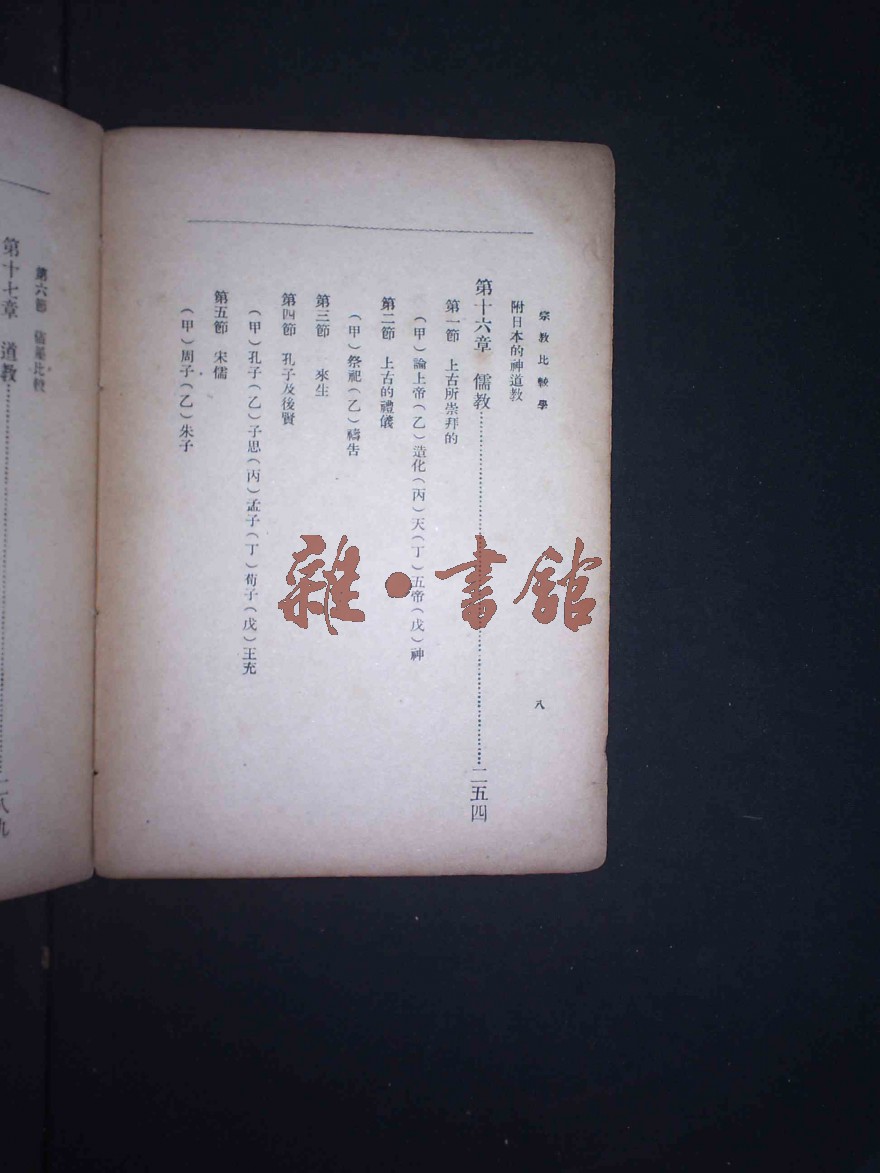 宗教比較學
八
附日本的神道教
第十六章 儒教……二五四
第一節 上古所崇拜的
（甲）論上帝（乙）造化（丙）天（丁）五帝（戊）神
第二節 上古的禮儀
（甲）祭祀（乙）禱告
第三節 來生
第四節 孔子及後賢
（甲）孔子（乙）子思（丙）孟子（丁）荀子（戊）王充
第五節 宋儒
（甲）周子（乙）朱子
第六節 儒墨比較
第十七章 道教……二八九
雜·書館